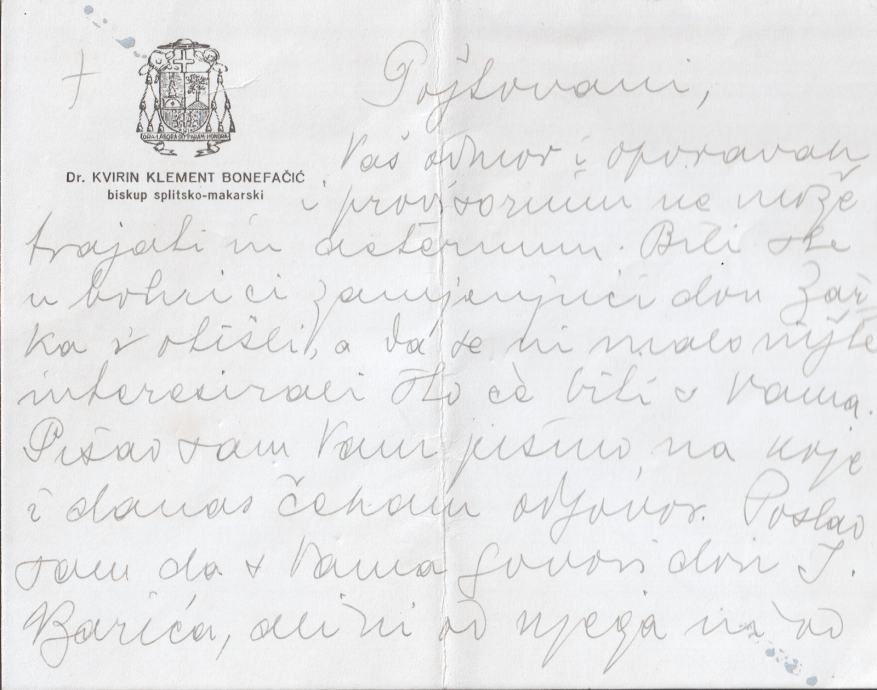 Poštovani,
Dr. KVIRIN KLEMENT BONEFAČIĆ
biskup splitsko-makarski
Vaš odmor i oporavak
i provisorium ne može
trajati in aeternum. Bili ste
u bolnici zamjenjujući don Žar-
ka i otišli, a da se ni malo nijste
interesirali što će biti s Vama.
Pisao sam Vam pismo, na koje
i danas čekam odgovor. Poslao
sam da s Vama govori don I.
Barića, ali ni od njega ni od